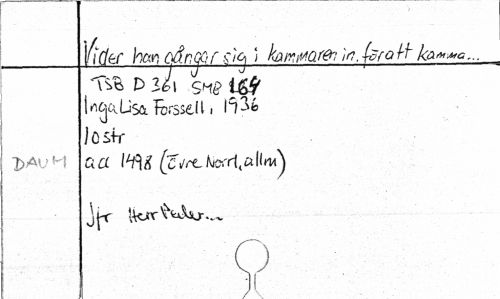 Vider han gångar sig i kammaren in, för att kamma...
TSB D 361 SMB 164
IngaLisa Forssell, 1936
10 str
DAUM acc 1498 (Övre Norrl, allm)
Jfr Herr Peder...